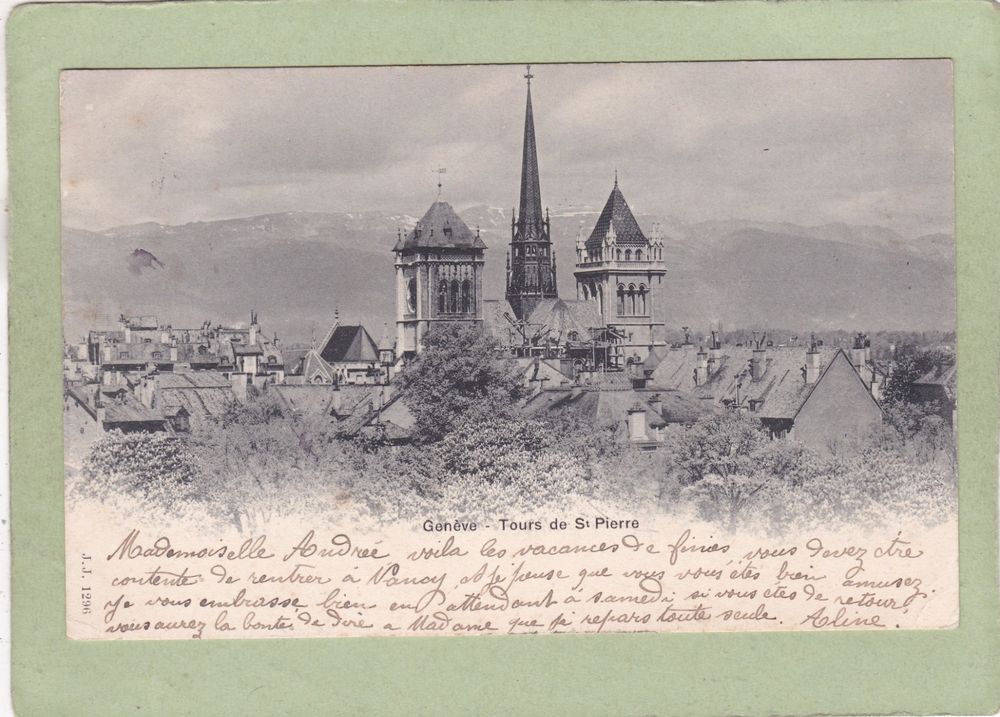 Genève - Tours de St Pierre
J.J. 1296
Mademoiselle Andrée voila les vacances de finies vous devez etre
contente de rentrer à Nancy je pense que vous vous étes bien amusez.
Je vous embrasse bien en attendant à samedi si vous étes de retour
vous aurez la bonte de dire a Madame que je repars toute seule. Aline.